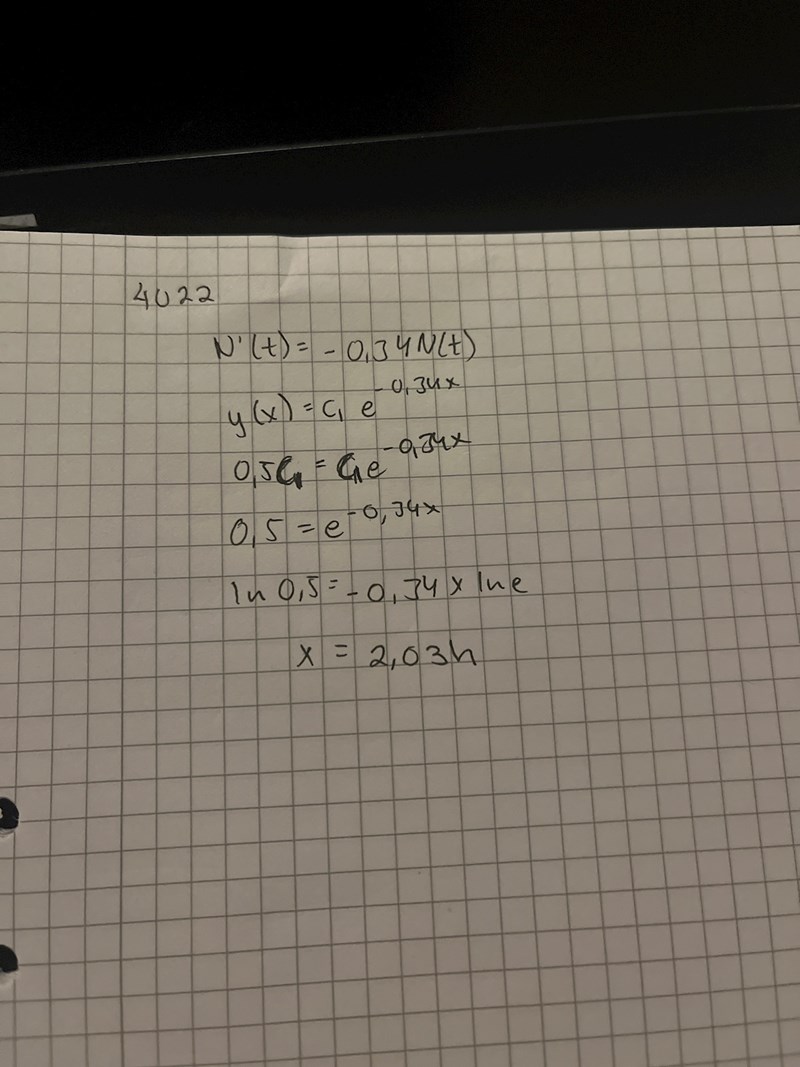 4022
N'(t) = -0,34N(t)
y(x) = C₁ e^-0,34x
0,5C₁ = C₁e^-0,34x
0,5 = e^-0,34x
ln 0,5 = -0,34 x ln e
x = 2,03h